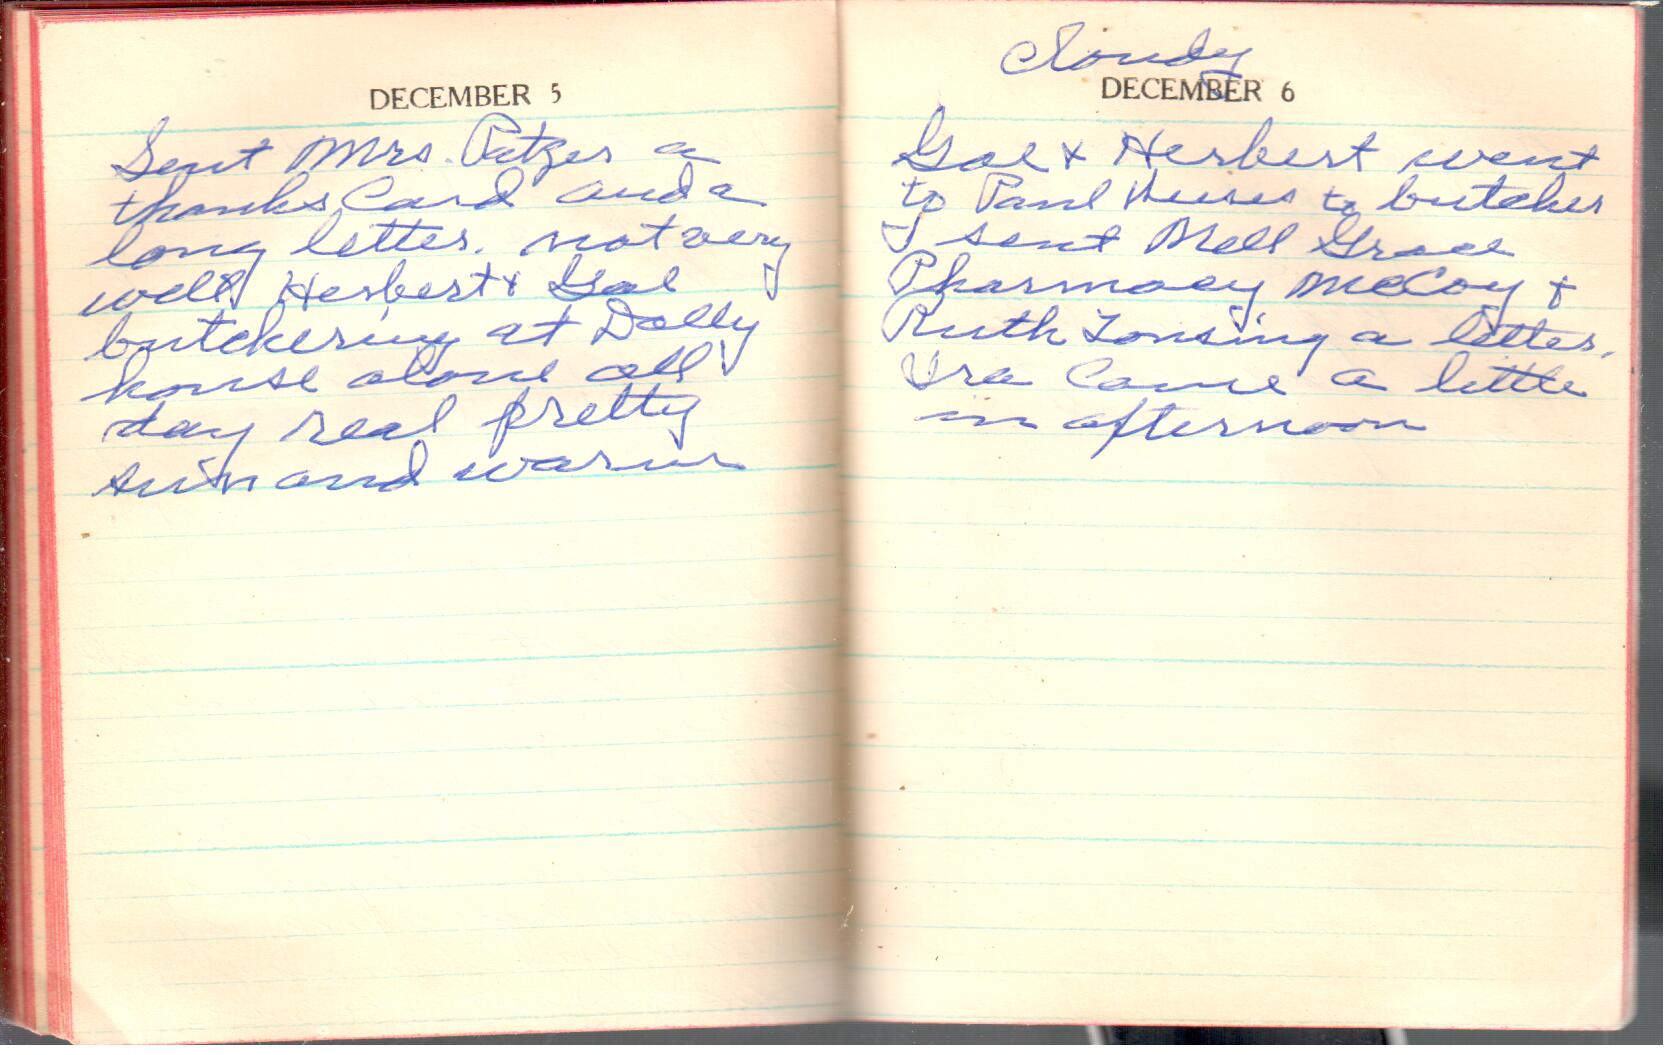 DECEMBER 5
Sent Mrs. Patzer a
thanks Card and a
long letter. not very
well Herbert & Gae
butchering at Dolly
house alone all
day real pretty
sun and warm
Cloudy
DECEMBER 6
Gae & Herbert went
to Paul to butcher
I sent Mell Grace
Pharmacy McCoy &
Ruth Lonsing a letter.
Ira Came a little
in afternoon